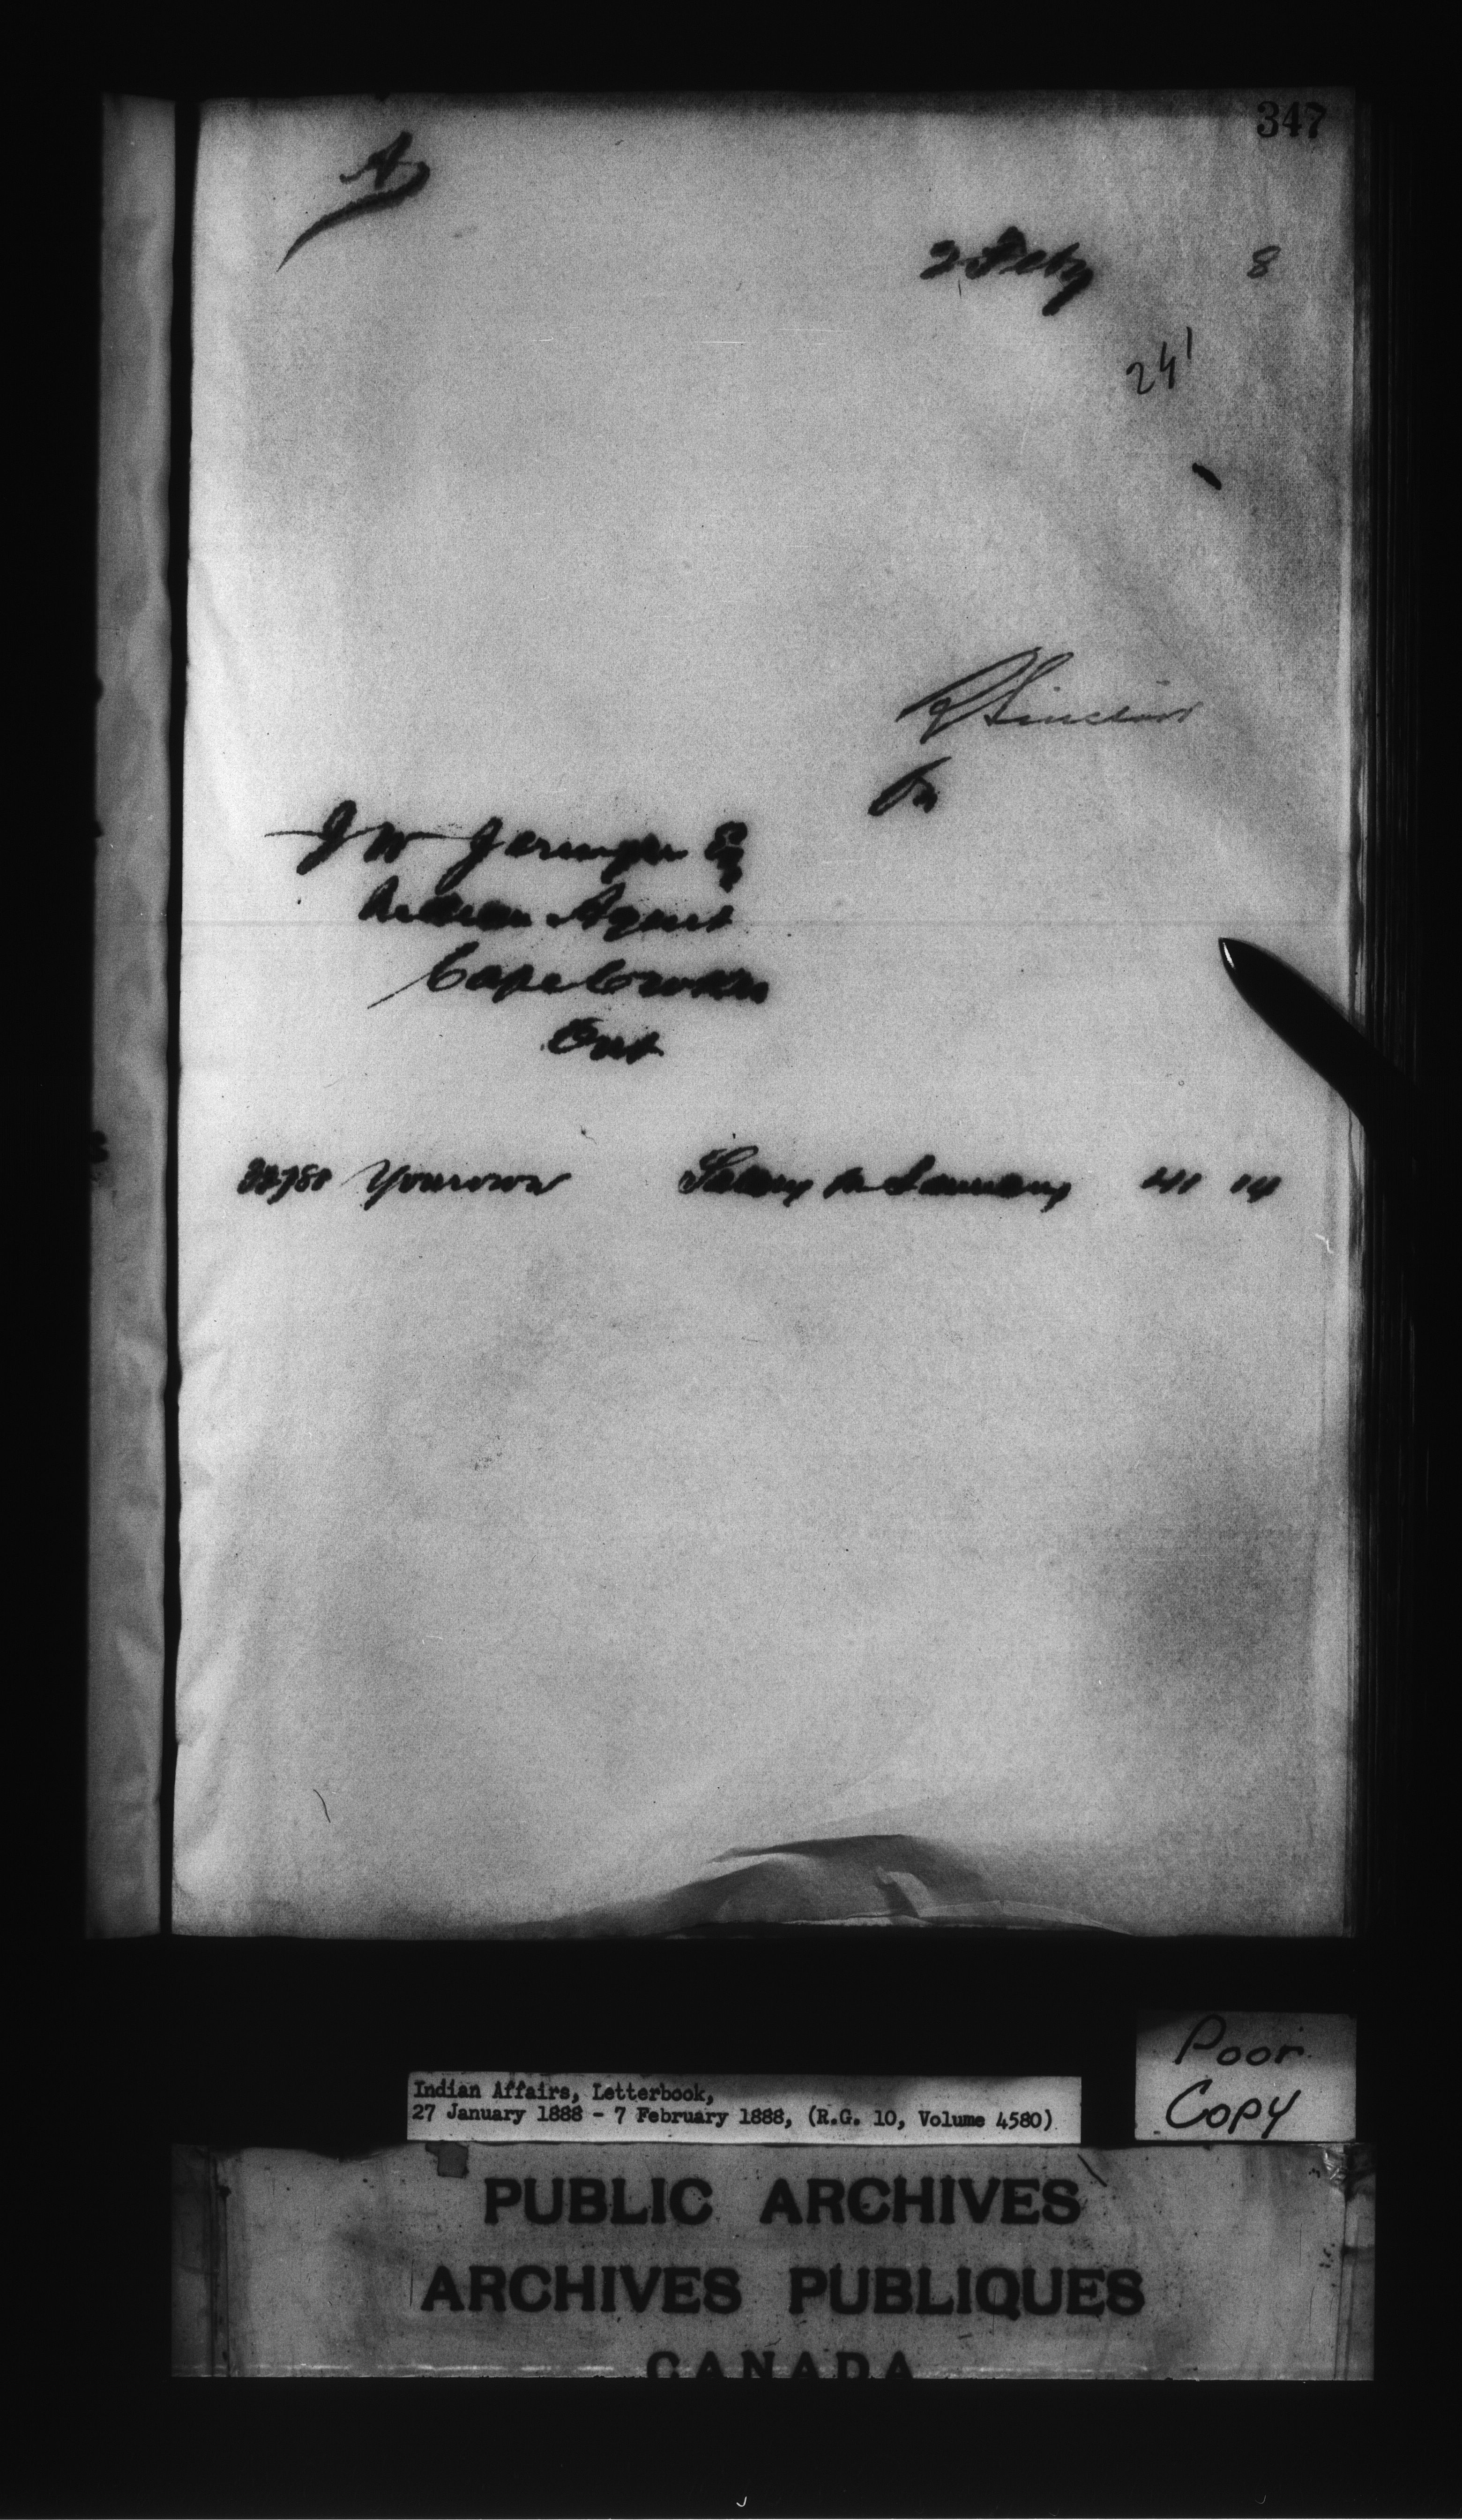 347
A
2 Feby 8
24'
R Sinclair
for
J W Jermyn Esq
Indian Agent
Cape Croker
Ont
Yourown Salary for January 41 14
Poor
Copy
Indian Affairs, Letterbook,
27 January 1888 - 7 February 1888, (R.G. 10, Volume 4580)
PUBLIC ARCHIVES
ARCHIVES PUBLIQUES
CANADA